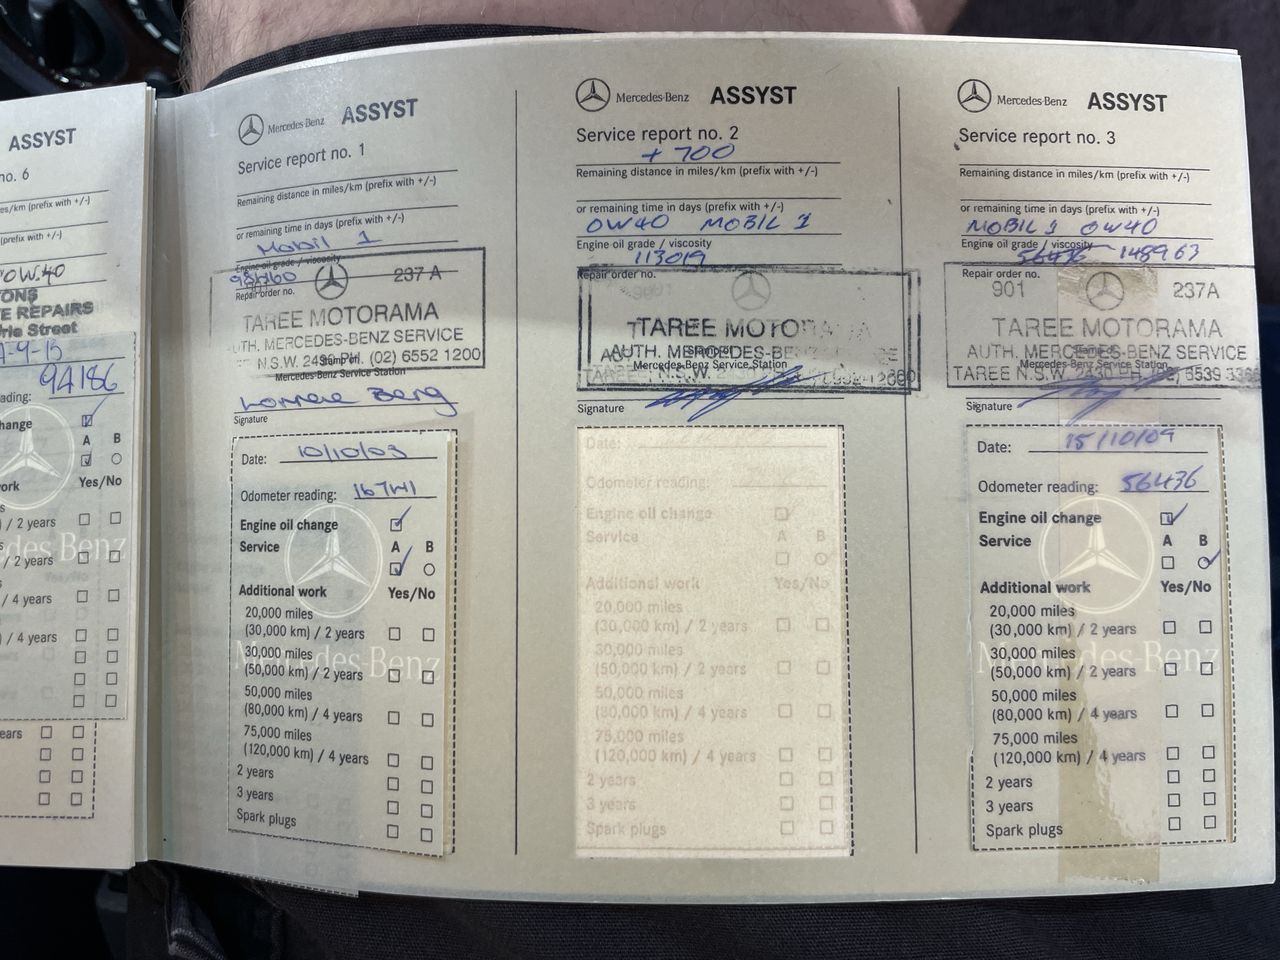 ASSYST
no. 6
es/km (prefix with +/-)
(prefix with +/-)
0W.40
E REPAIRS
rie Street
94186
ading:
hange
A B
ork Yes/No
/ 2 years
/ 2 years
/ 4 years
/ 4 years
ears
Mercedes-Benz ASSYST
Service report no. 1
Remaining distance in miles/km (prefix with +/-)
or remaining time in days (prefix with +/-)
Mobil 1
Engine oil grade / viscosity
Repair order no.
237 A
TAREE MOTORAMA
AUTH. MERCEDES-BENZ SERVICE
N.S.W. 2430 PH. (02) 6552 1200
Mercedes-Benz Service Station
Signature
Date: 10/10/03
Odometer reading:
Engine oil change
Service A B
Additional work Yes/No
20,000 miles
(30,000 km) / 2 years
30,000 miles
(50,000 km) / 2 years
50,000 miles
(80,000 km) / 4 years
75,000 miles
(120,000 km) / 4 years
2 years
3 years
Spark plugs
Mercedes-Benz
Mercedes-Benz ASSYST
Service report no. 2
+ 700
Remaining distance in miles/km (prefix with +/-)
or remaining time in days (prefix with +/-)
0W40 MOBIL 1
Engine oil grade / viscosity
113019
Repair order no.
TAREE MOTORAMA
AUTH. MERCEDES-BENZ
Mercedes-Benz Service Station
TAREE N.S.W.
Signature
Date:
Odometer reading:
Engine oil change
Service A B
Additional work Yes/No
20,000 miles
(30,000 km) / 2 years
30,000 miles
(50,000 km) / 2 years
50,000 miles
(80,000 km) / 4 years
75,000 miles
(120,000 km) / 4 years
2 years
3 years
Spark plugs
Mercedes-Benz ASSYST
Service report no. 3
Remaining distance in miles/km (prefix with +/-)
or remaining time in days (prefix with +/-)
MOBIL 1 0W40
Engine oil grade / viscosity
56436 148963
Repair order no.
901 237A
TAREE MOTORAMA
AUTH. MERCEDES-BENZ SERVICE
Mercedes-Benz Service Station
TAREE N.S.W. 2430 PH (02) 6539
Signature
Date: 15/10/09
Odometer reading: 56436
Engine oil change
Service A B
Additional work Yes/No
20,000 miles
(30,000 km) / 2 years
30,000 miles
(50,000 km) / 2 years
50,000 miles
(80,000 km) / 4 years
75,000 miles
(120,000 km) / 4 years
2 years
3 years
Spark plugs
Mercedes-Benz